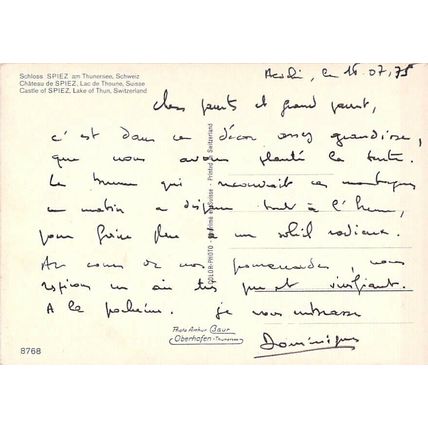 Schloss SPIEZ am Thunersee, Schweiz
Château de SPIEZ, Lac de Thoune, Suisse
Castle of SPIEZ, Lake of Thun, Switzerland
le 16.07.75
Chers parents et grand parent,
c'est dans ce décor assez grandiose,
que nous avons planté la tente.
La brume qui recouvrait ces montagnes
ce matin a disparu tout à l'heure,
pour faire place à un soleil radieux.
Au cours de nos promenades, nous
respirons un air très pur et vivifiant.
A la prochaine. je vous embrasse
Dominique
COLOR-PHOTO - Imprimé en Suisse - Printed in Switzerland
Photo Arthur Baur
Oberhofen-Thunersee
8768